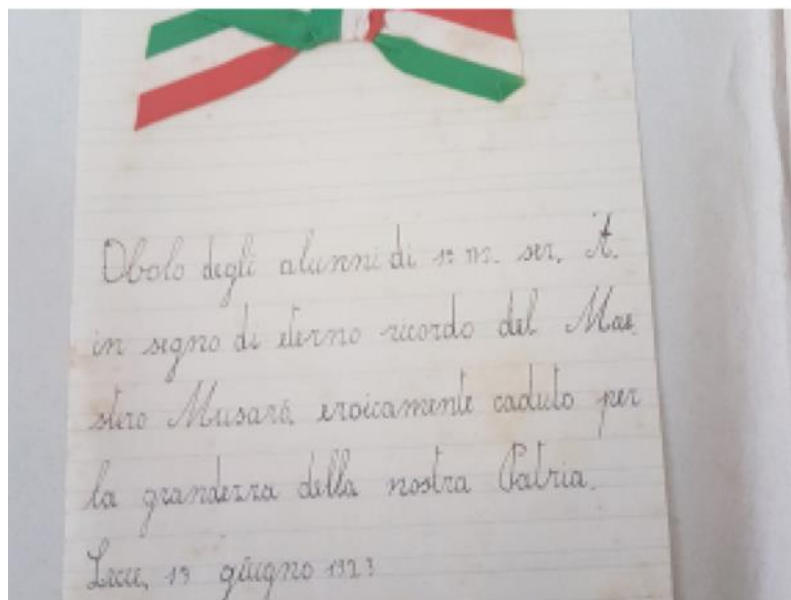 Obolo degli alunni di 1ª m. sez. A.
in segno di eterno ricordo del Mae
stro Musarò, eroicamente caduto per
la grandezza della nostra Patria.
Lecce, 13 giugno 1923